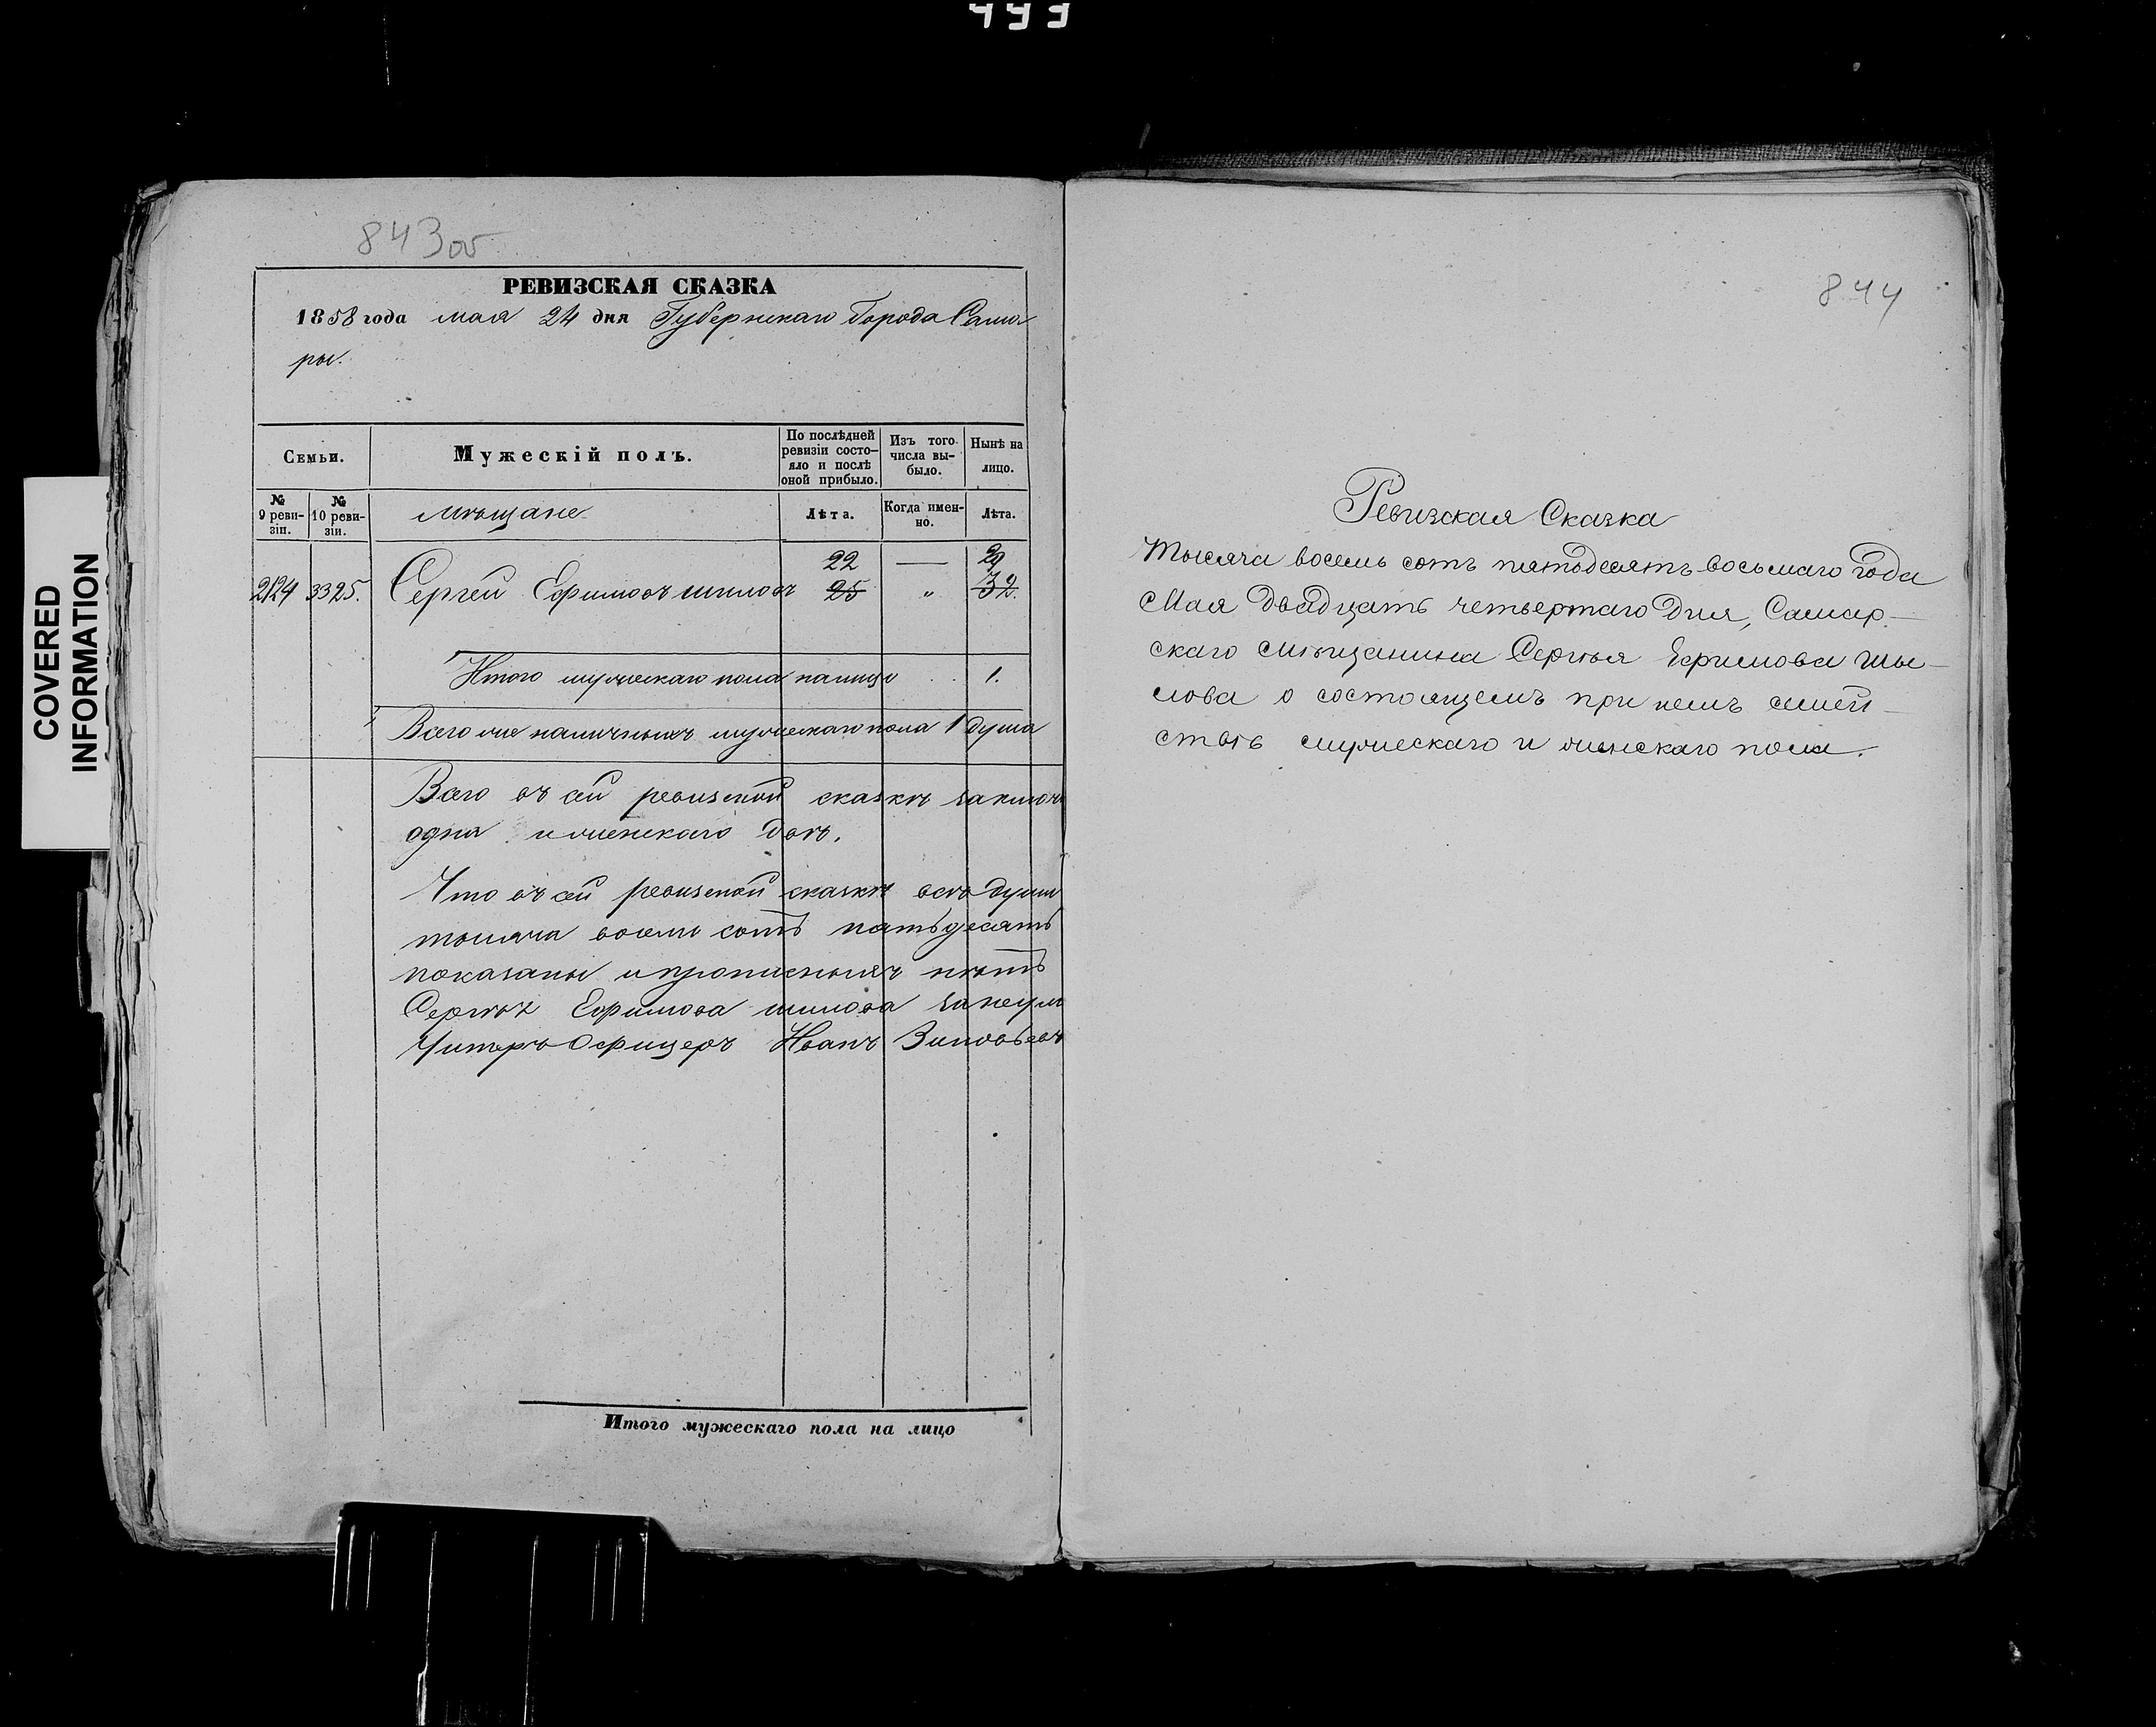 493
COVERED
INFORMATION
843 об
РЕВИЗСКАЯ СКАЗКА
1858 года мая 24 дня Губернскаго Города Сама
ры.
Семьи.
Мужескій полъ.
По послѣдней
ревизіи состо-
яло и послѣ
оной прибыло.
Изъ того
числа вы-
было.
Нынѣ на
лицо.
№
9 реви-
зіи.
№
10 реви-
зіи.
мѣщане
Лѣта.
Когда имен-
но.
Лѣта.
22 — 29
2124 3325. Сергей Ефимовъ шиловъ 25 " 32.
Итого мужескаго пола налицо . . 1.
Всего же наличныхъ мужескаго пола 1 душа
Всего въ сей ревизской сказкѣ заключ
одна и женскаго двѣ.
Что въ сей ревизской сказкѣ всѣ души
тысяча восемь сотъ пятьдесятъ
показаны и прописныхъ нѣтъ
Сергѣя Ефимова шилова
Унтеръ Офицеръ Иванъ Зиновьевъ
Итого мужескаго пола на лицо
844
Ревизская Сказка
Тысяча восемь сотъ пятьдесятъ восьмаго года
Мая двадцать четвертаго дня, Самар-
скаго мѣщанина Сергѣя Ефимова Шы-
лова о состоящемъ при немъ семей-
ствѣ мужескаго и женскаго пола.